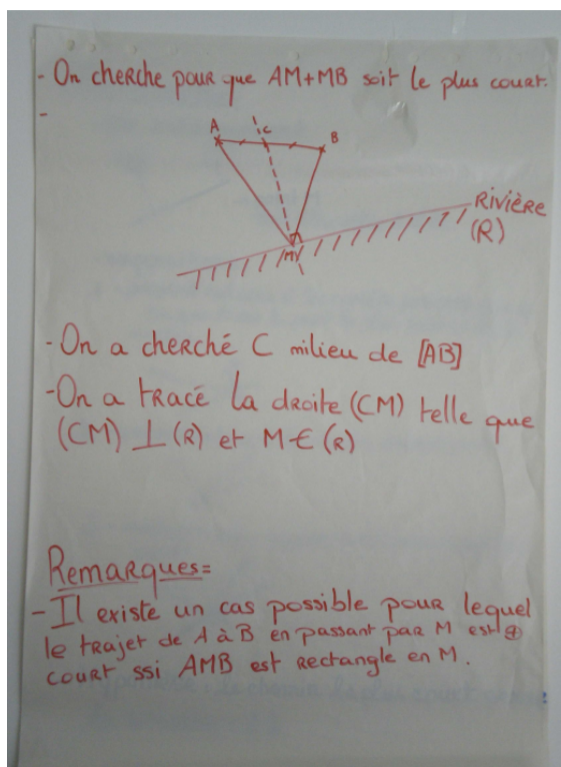 - On cherche pour que AM+MB soit le plus court.
-
A
C
B
Rivière
(R)
M
- On a cherché C milieu de [AB]
- On a tracé la droite (CM) telle que
(CM) ⊥ (R) et M ∈ (R)
Remarques=
- Il existe un cas possible pour lequel
le trajet de A à B en passant par M est ⊕
court ssi AMB est rectangle en M.